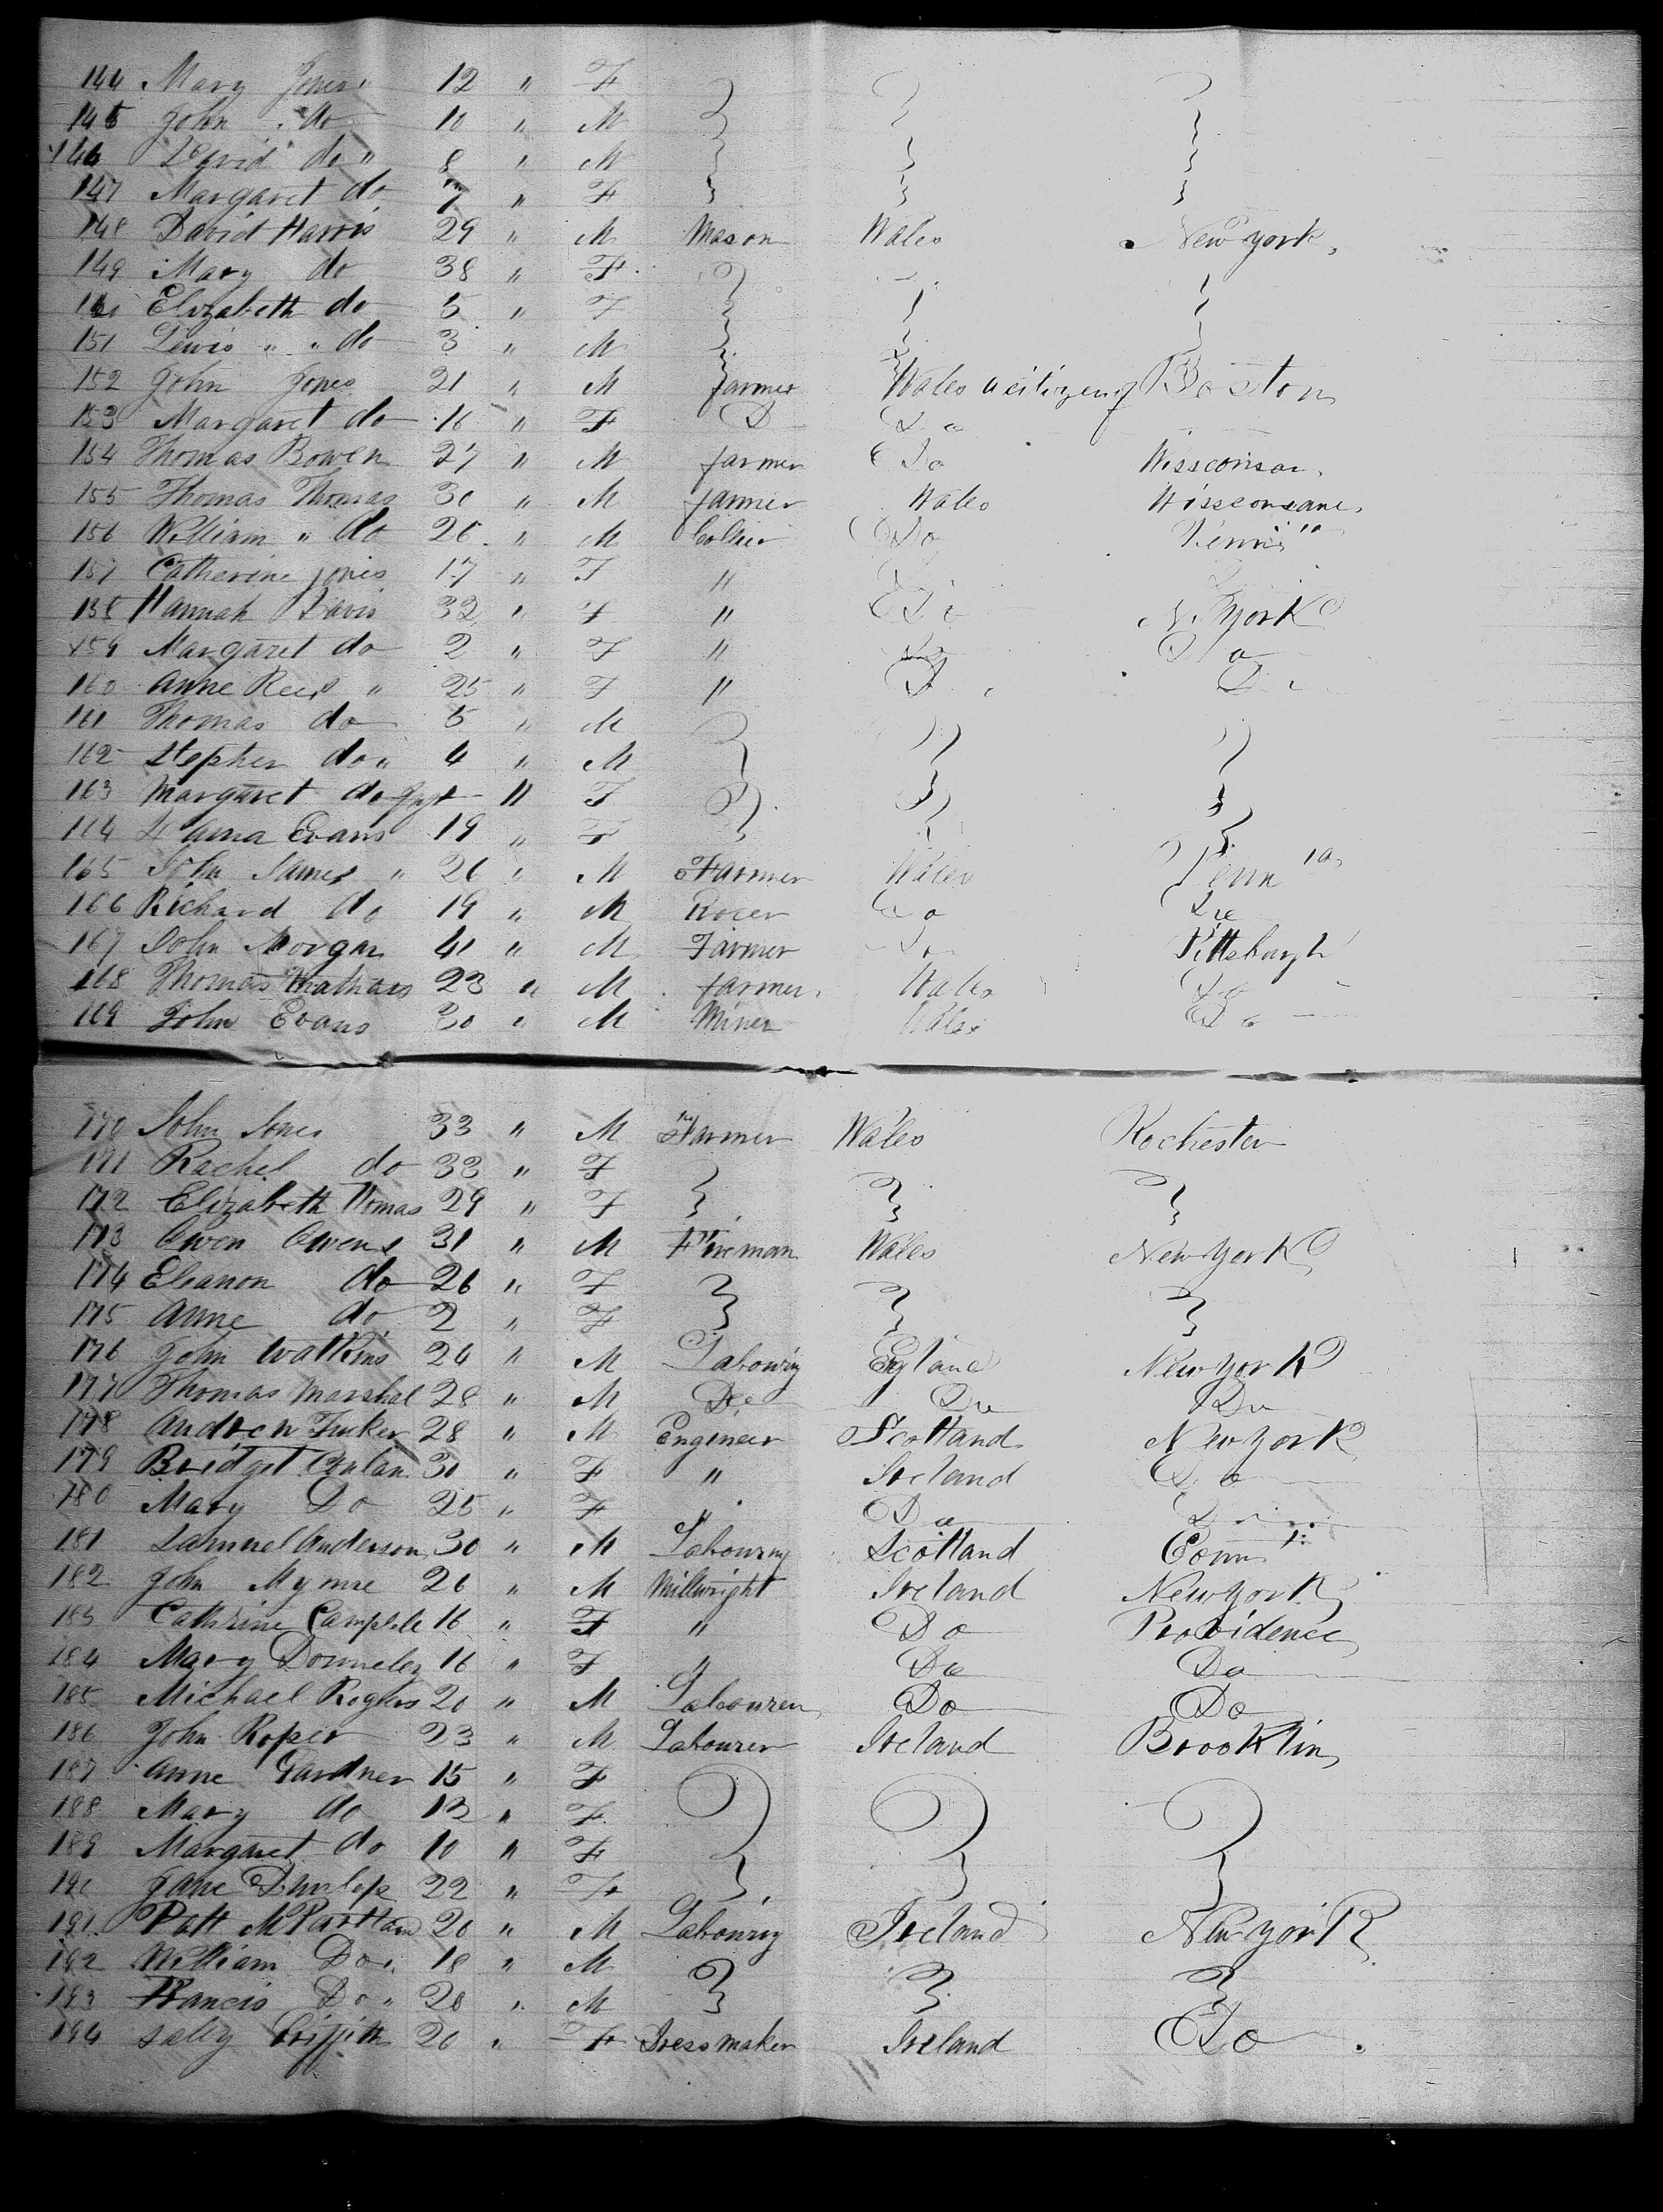 144 Mary Jones 12 " F
145 John do 10 " M
146 David do " 8 " M
147 Margaret do 7 " F
148 David Harris 29 " M Mason Wales New york
149 Mary do 38 " F
Elizabeth do 5 " F
151 Lewis " " do 3 " M
152 John Jones 21 " M farmer Wales a citizen of Boston
153 Margaret do 16 " F D Do
154 Thomas Bowen 27 " M farmer Do Wissconsan
155 Thomas Thomas 30 " M farmer Wales Wissconsane
156 William " do 26 " M Collier Do Penn ia
157 Catherine Jones 17 " F "
158 Hannah Davis 32 " F " Do N. York
159 Margaret do 2 " F " Do Do
160 Anne Rees " 25 " F " D Do
161 Thomas do 5 " M
162 Stephen do " 4 " M
163 Margaret do Inft " F
164 Evans 19 " F
165 John James " 26 " M Farmer Wales Penn ia
166 Richard do 19 " M Do
167 John Morgan 41 " M Farmer Do Pittsburgh
168 Thomas Mathias 23 " M farmer Wales Do
169 John Evans 30 " M Miner Wales Do
170 John Jones 33 " M Farmer Wales Rochester
171 Rachel do 33 " F
172 Elizabeth Thomas 29 " F
173 Owen Owens 31 " M Fireman Wales New York
174 Eleanon do 26 " F
175 Anne do 2 " F
176 John Watkins 24 " M Labouring Egland New York
177 Thomas Marshal 28 " M Do Do Do
178 Andrew Tucker 28 " M Engineer Scottand New York
179 Bridget 30 " F " Ireland Do
180 Mary Do 25 " F " Do Do
181 Samuel Anderson 30 " M Labouring Scotland Conn t
182 John 26 " M Millwright Ireland New York
183 Cathrine Camplele 16 " F " Do Providence
184 Mary Donneley 16 " F " Do Do
185 Michael Rogers 20 " M Labourer Do Do
186 John Roper 23 " M Labourer Ireland Brooklin
187 Anne Gardner 15 " F
188 Mary do 13 " F
189 Margaret do 10 " F
190 Jane Dunlop 22 " F
191 Patt McParttan 20 " M Labouring Ireland New York
192 William Do " 18 " M
193 Francis Do " 20 " M
194 Sally Griffith 20 " F Dressmaker Ireland Do